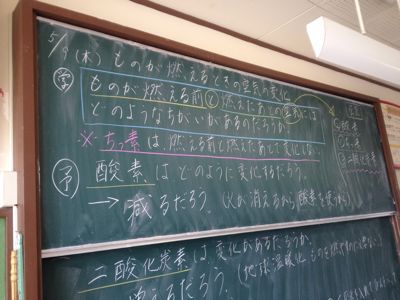 5/9(木) ものが燃えるときの空気の変化
学 ものが燃える前と燃えたあとの空気には
どのようなちがいがあるのだろうか。
※ちっ素は燃える前と燃えたあとで変化しない。
予 酸素はどのように変化するだろう。
→減るだろう。(火が消えるから酸素を使うから)
二酸化炭素は変化があるだろうか。
増えるだろう。(地球温暖化
酸素
二酸化炭素